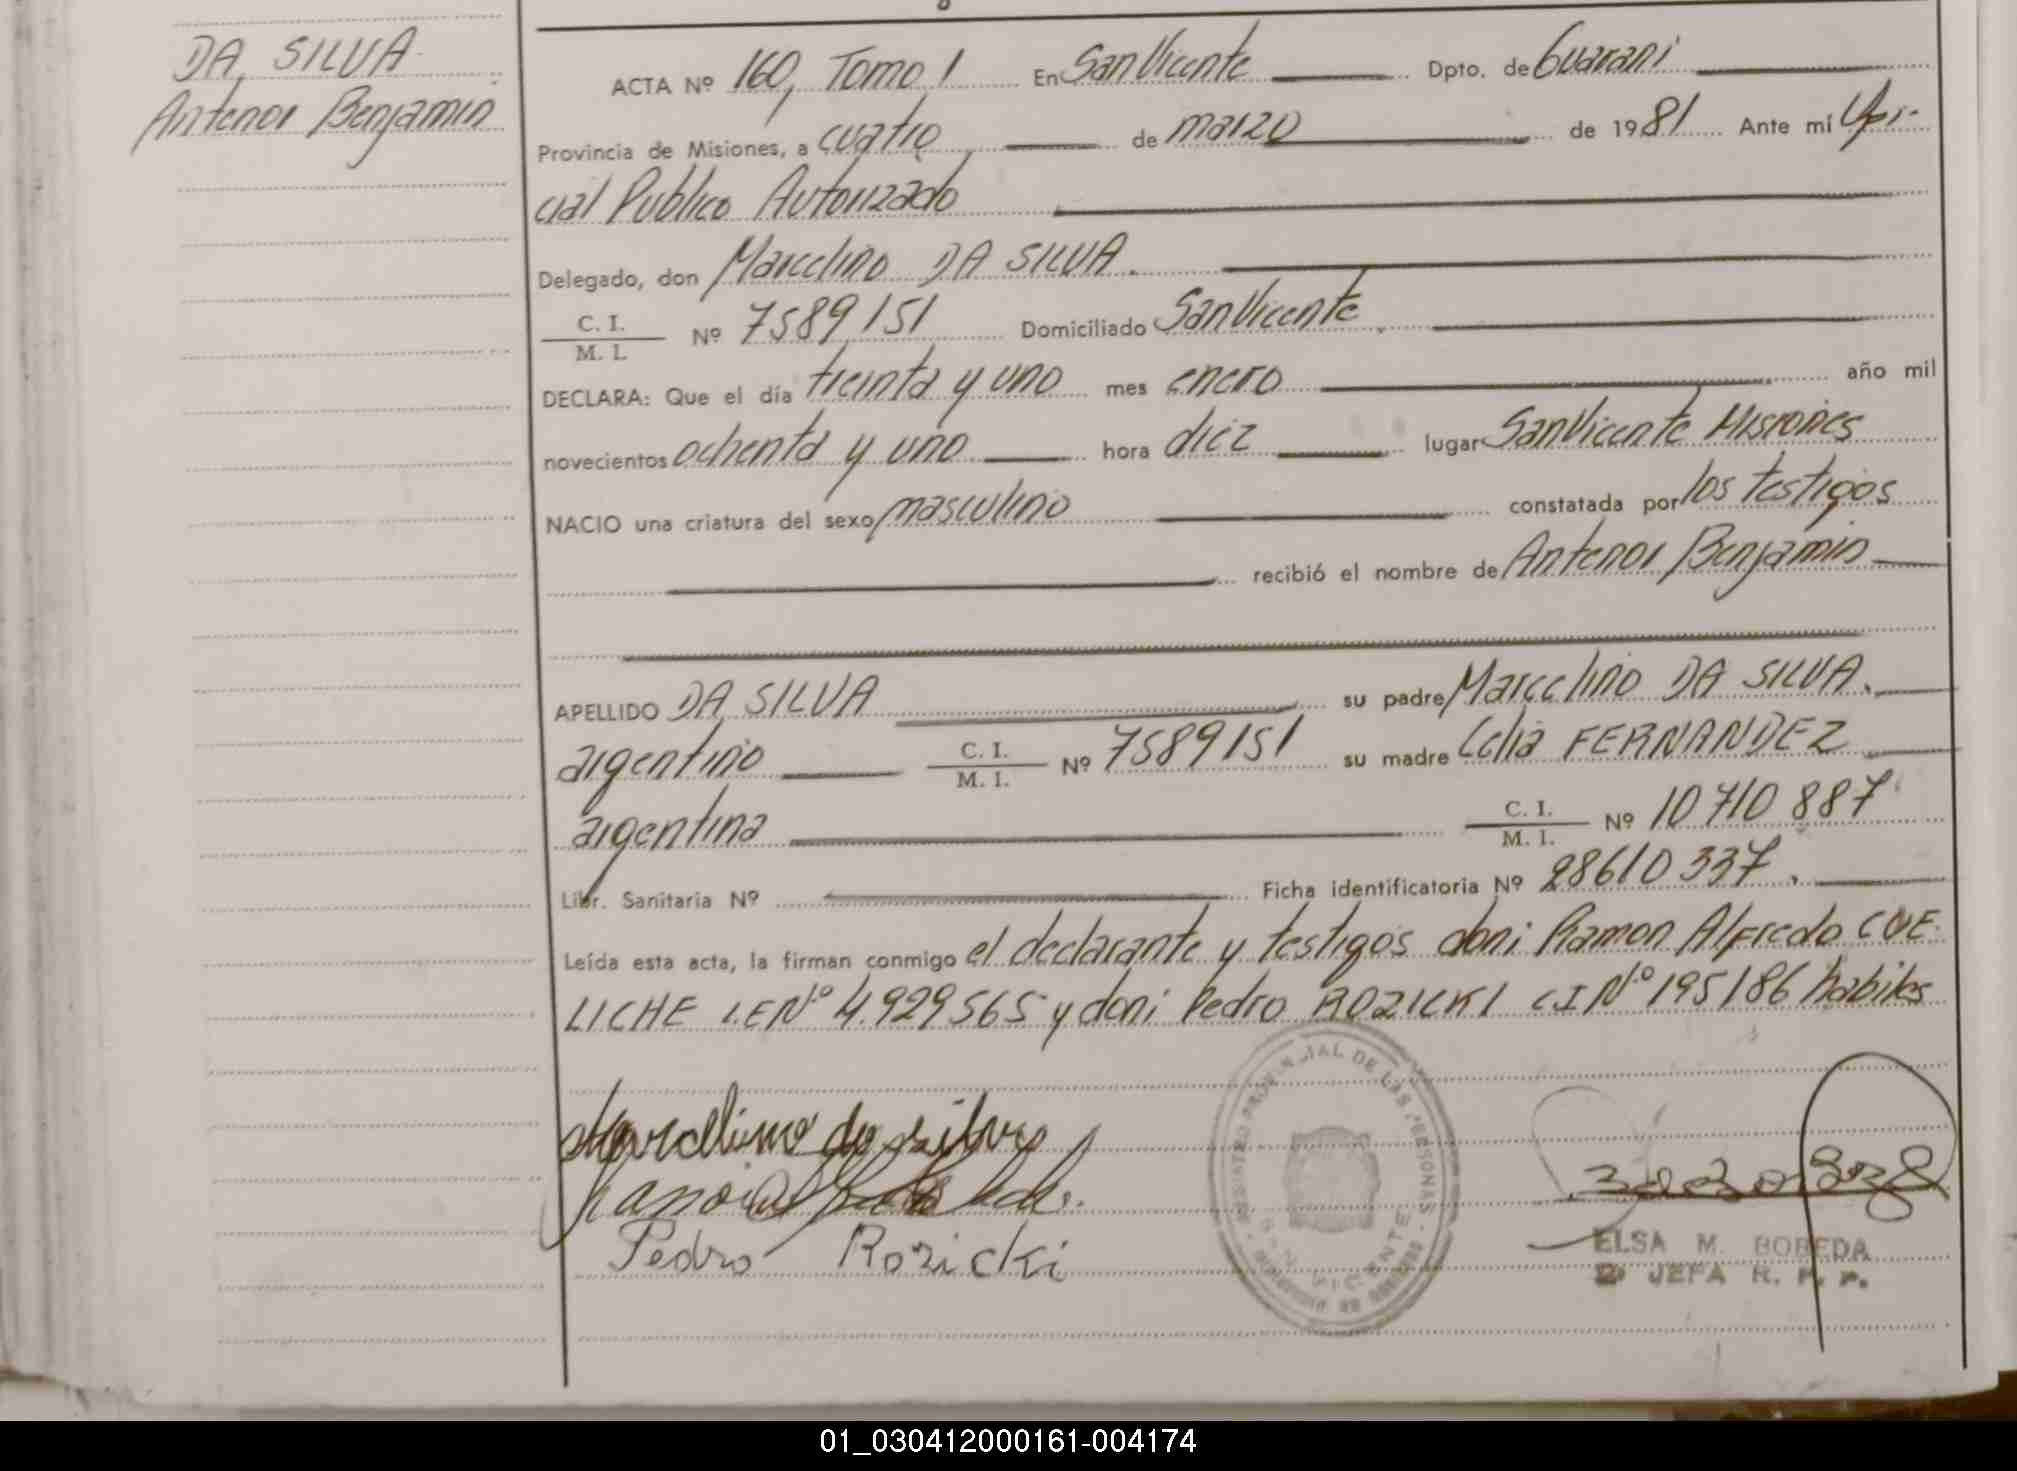 DA SILVA
Antenor Benjamin
ACTA Nº 160, Tomo 1 En San Vicente Dpto. de Guarani
Provincia de Misiones, a cuatro de marzo de 1981 Ante mí Ofi-
cial Publico Autorizado
Delegado, don Marcelino DA SILVA.
C. I.
M. I. Nº 7589151 Domiciliado San Vicente
DECLARA: Que el día treinta y uno mes enero año mil
novecientos ochenta y uno hora diez lugar San Vicente Misiones
NACIO una criatura del sexo masculino constatada por los testigos
recibió el nombre de Antenor Benjamin
APELLIDO DA SILVA su padre Marcelino DA SILVA.
argentino C. I. M. I. Nº 7589151 su madre Celia FERNANDEZ
argentina C. I. M. I. Nº 10710887
Libr. Sanitaria Nº Ficha identificatoria Nº 28610337.
Leída esta acta, la firman conmigo el declarante y testigos don: Ramon Alfredo CUE-
LICHE L.E Nº 4.929565 y don: Pedro ROZICKI C.I Nº 195186 habiles
Marcelino da Silva
Pedro Rozicki
REGISTRO PROVINCIAL DE LAS PERSONAS
SAN VICENTE
ELSA M. BOBEDA
JEFA R. P. P.
01_030412000161-004174